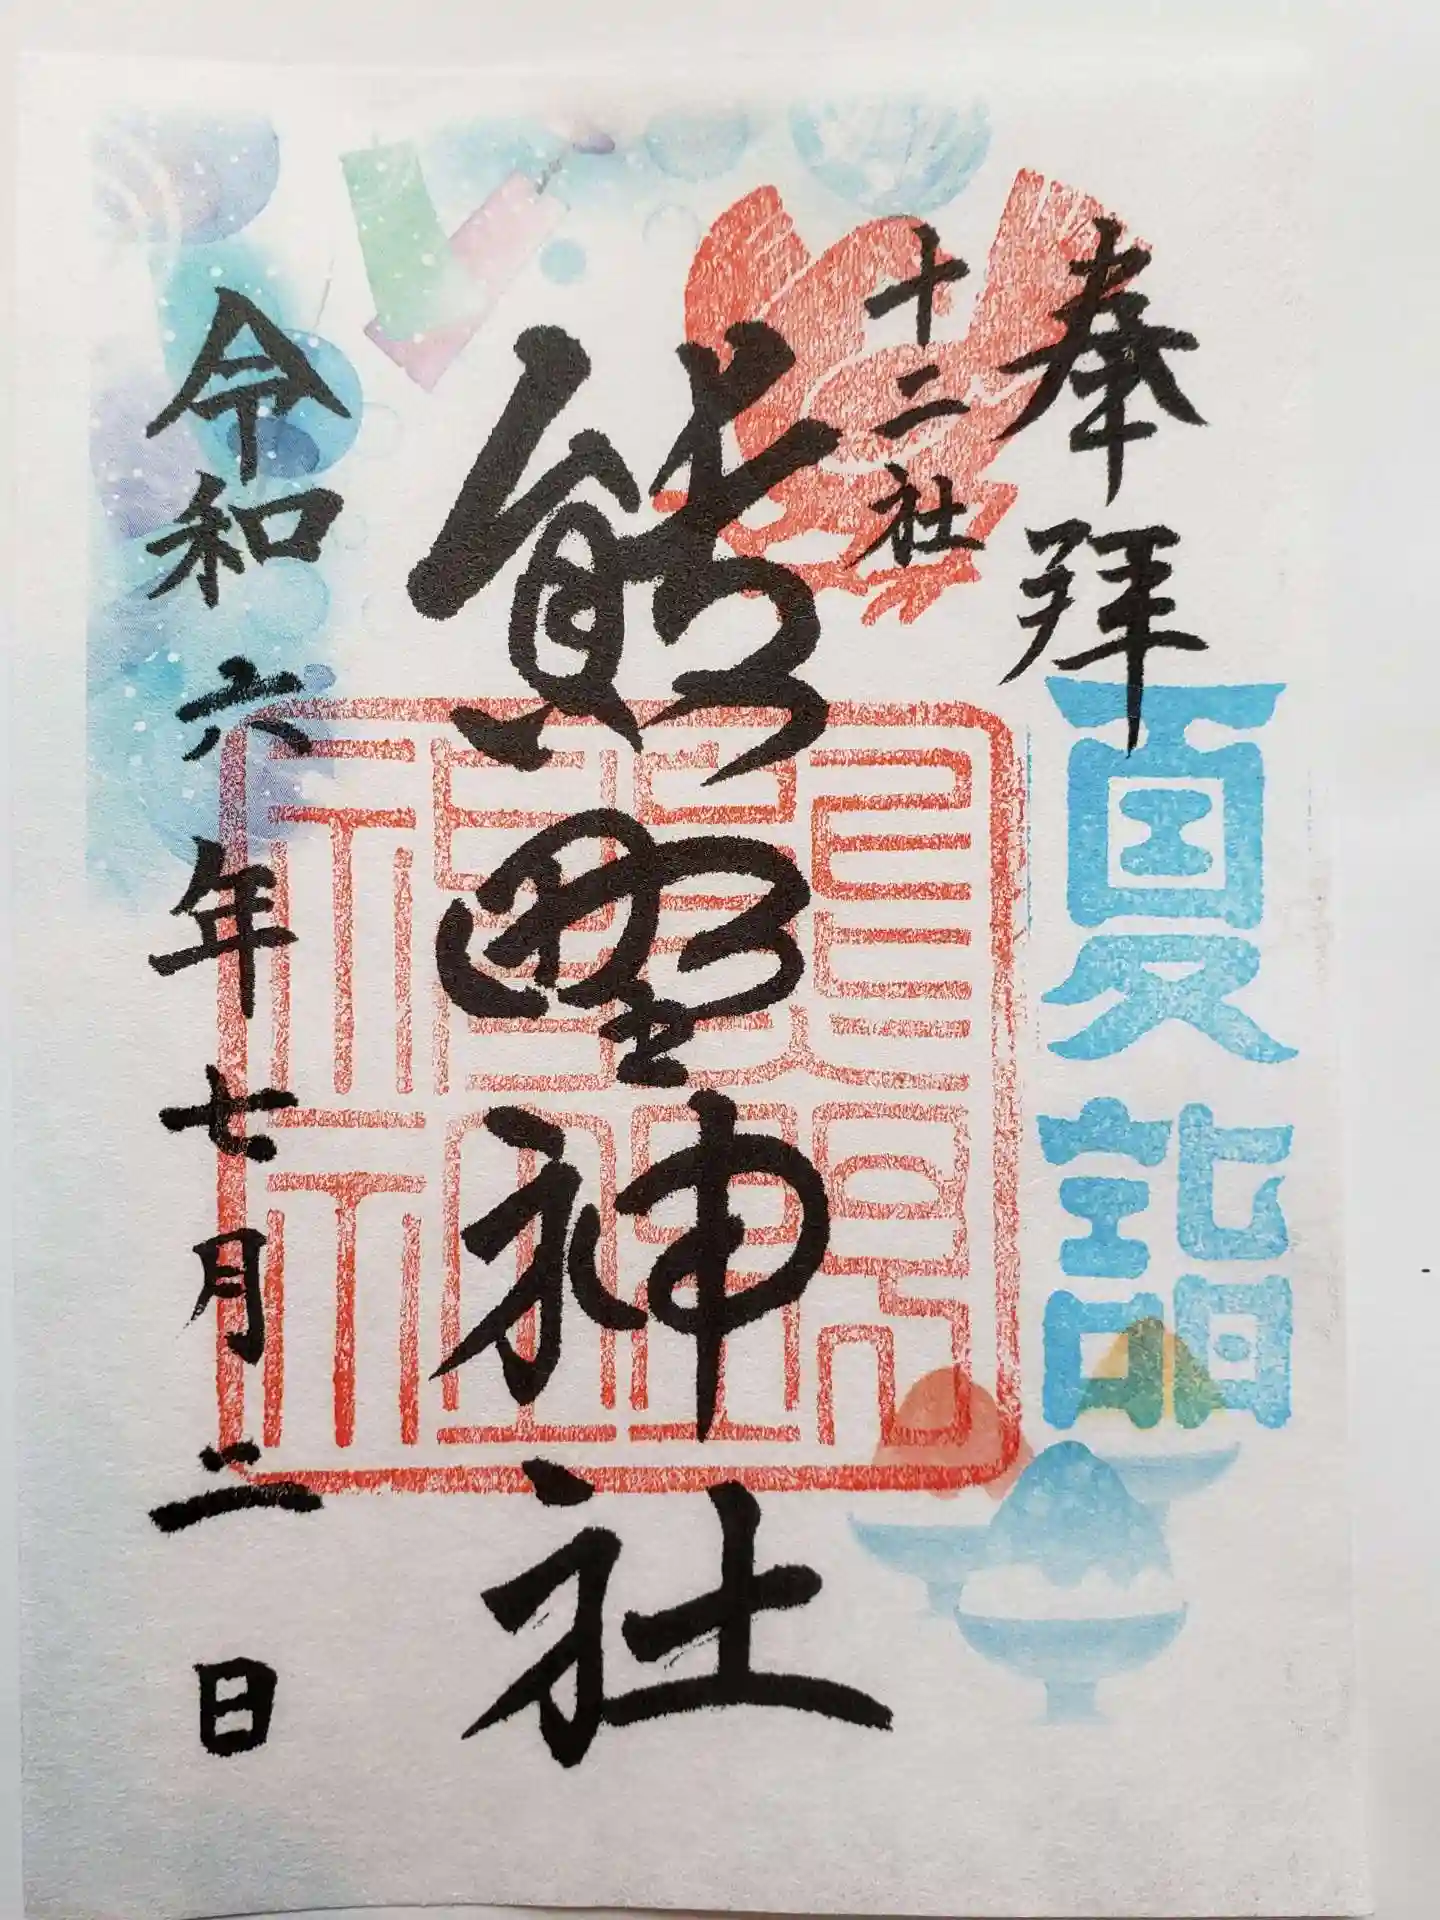 奉拝
夏詣
十二社
熊野神社
令和六年七月二日